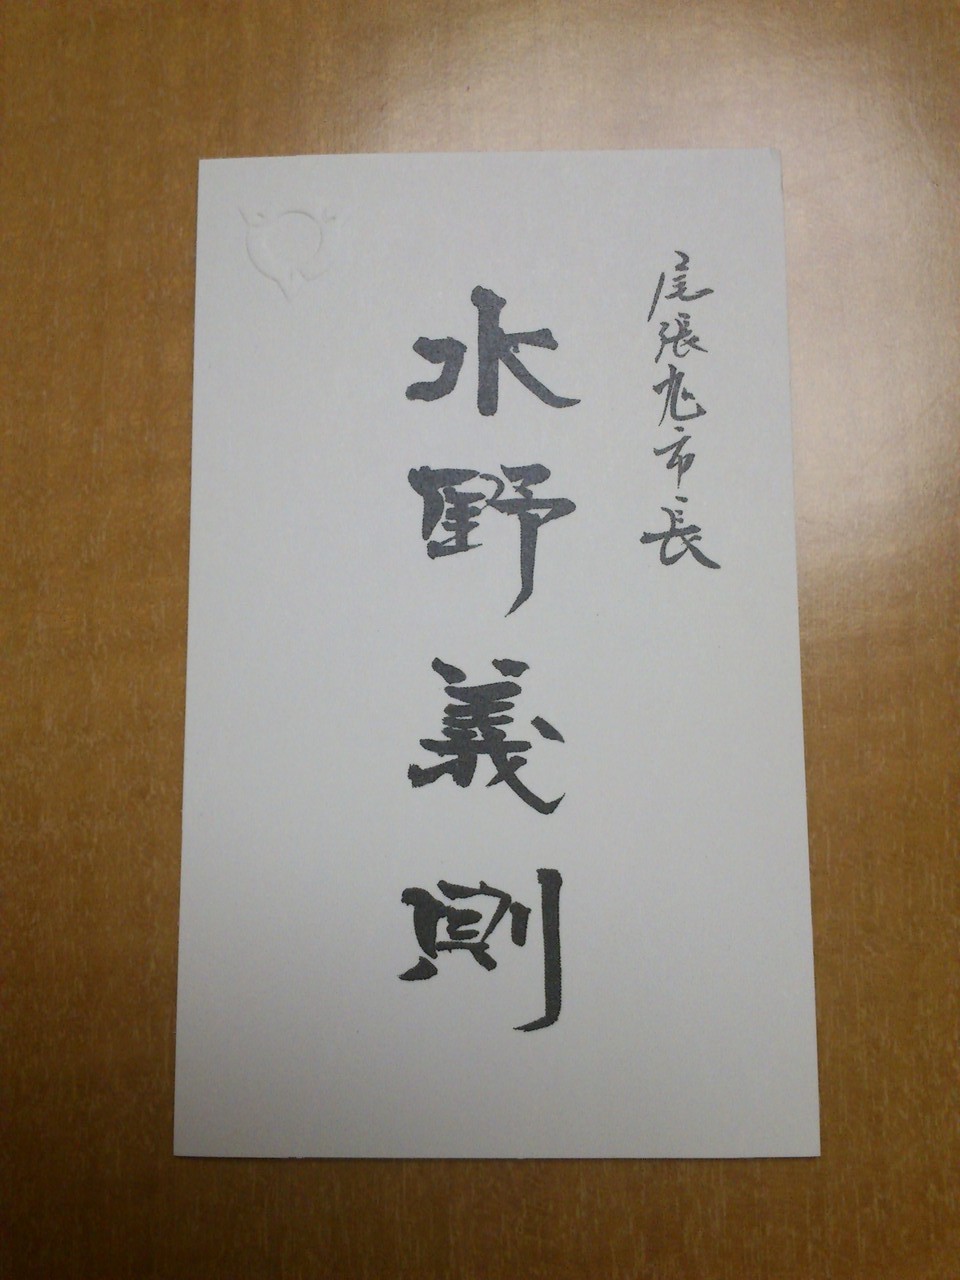 尾張旭市長
水野義則